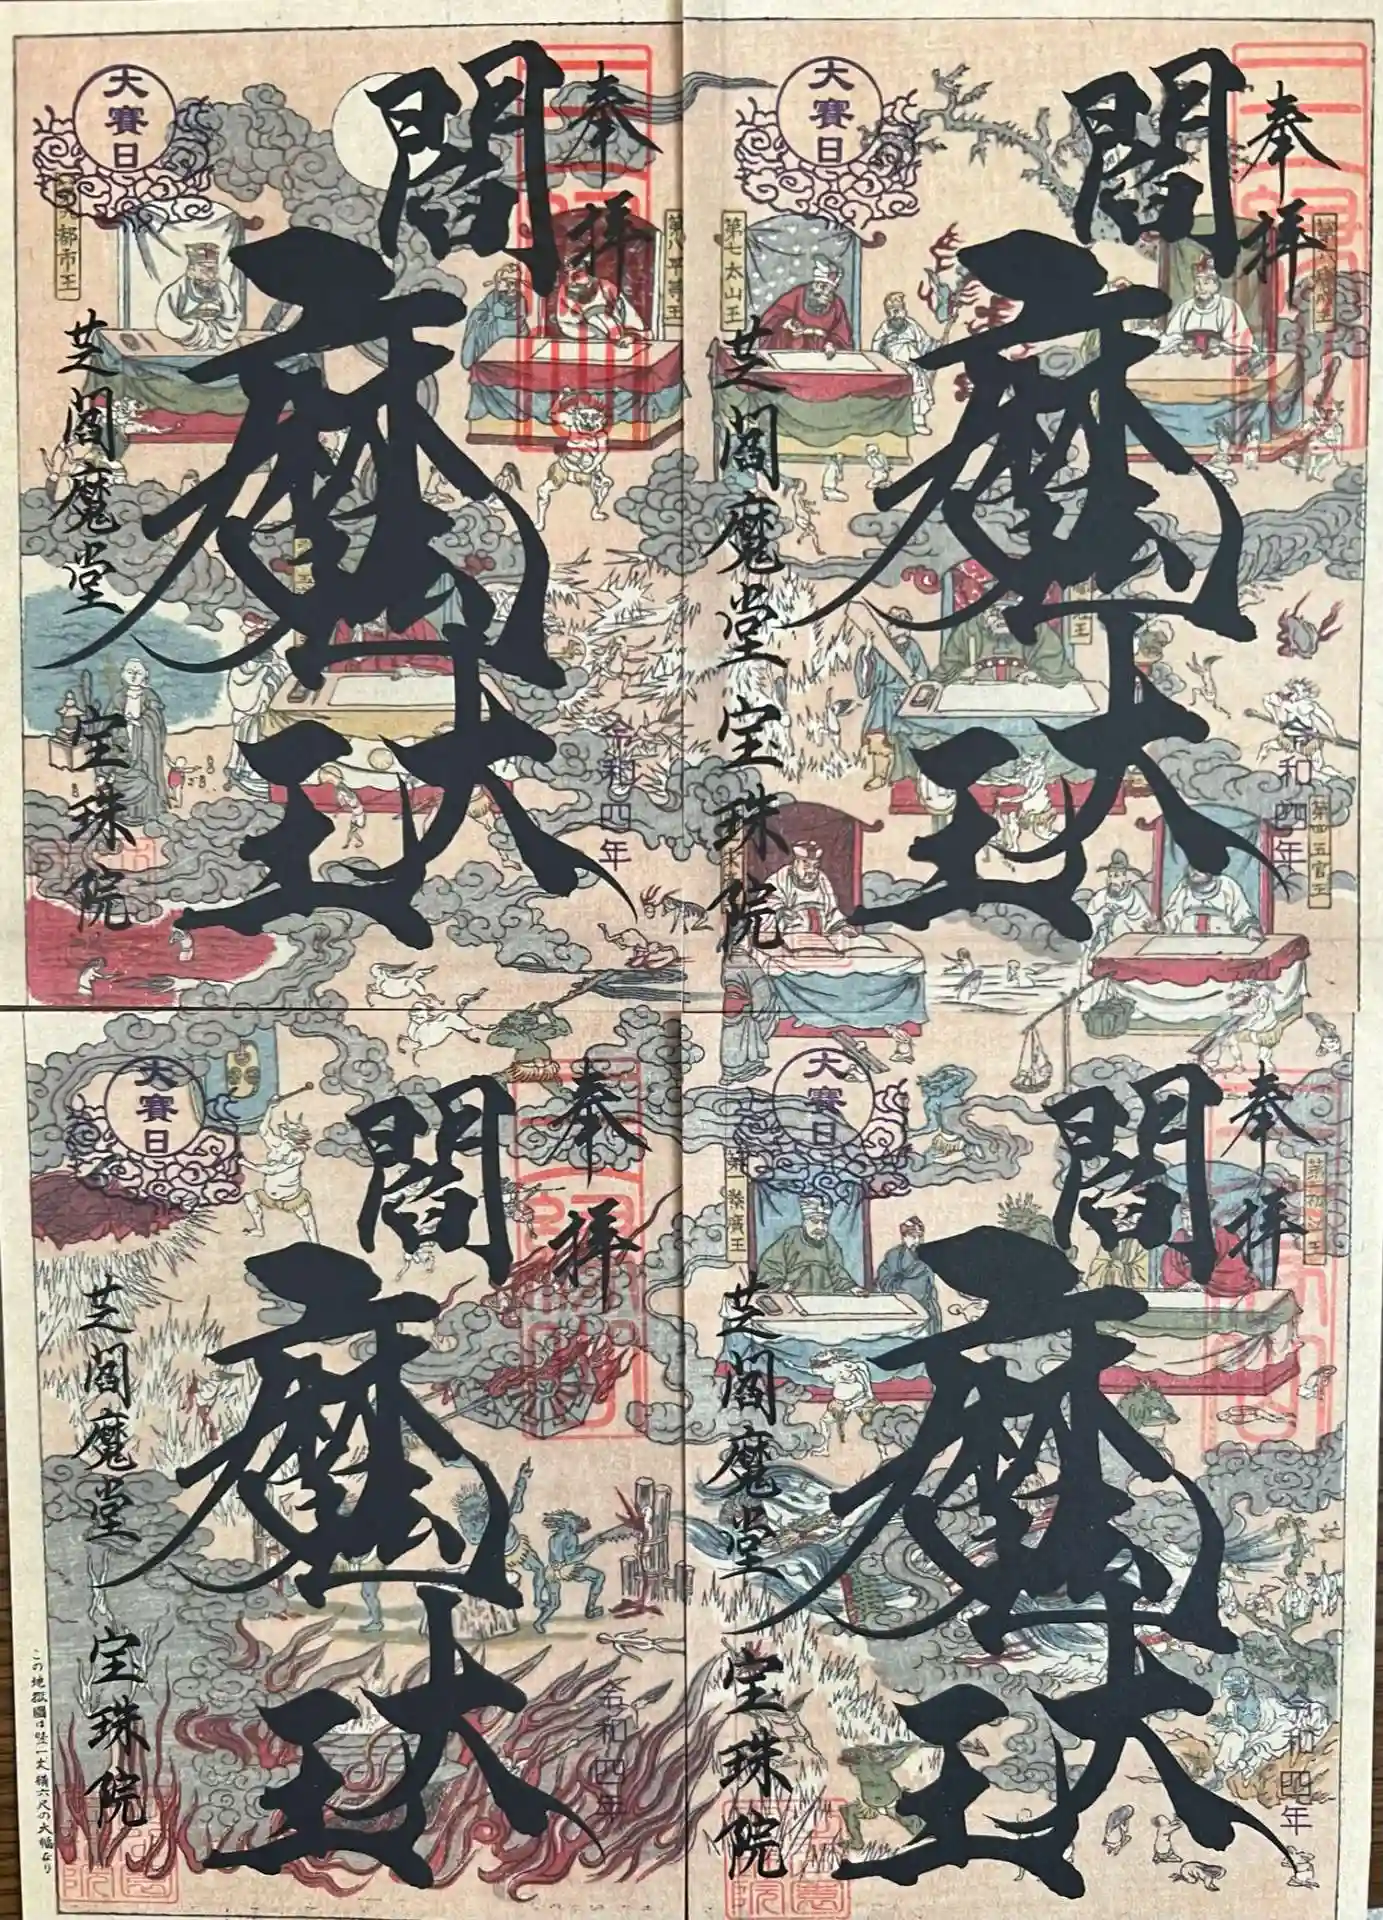 奉拝
閻魔大王
大賽日
令和四年
芝閻魔堂 宝珠院
第七太山王
第四五官王
奉拝
閻魔大王
大賽日
令和四年
芝閻魔堂 宝珠院
第八平等王
都市王
奉拝
閻魔大王
大賽日
令和四年
芝閻魔堂 宝珠院
第一秦広王
奉拝
閻魔大王
大賽日
令和四年
芝閻魔堂 宝珠院
この地獄圖は竪一丈横六尺の大幅なり